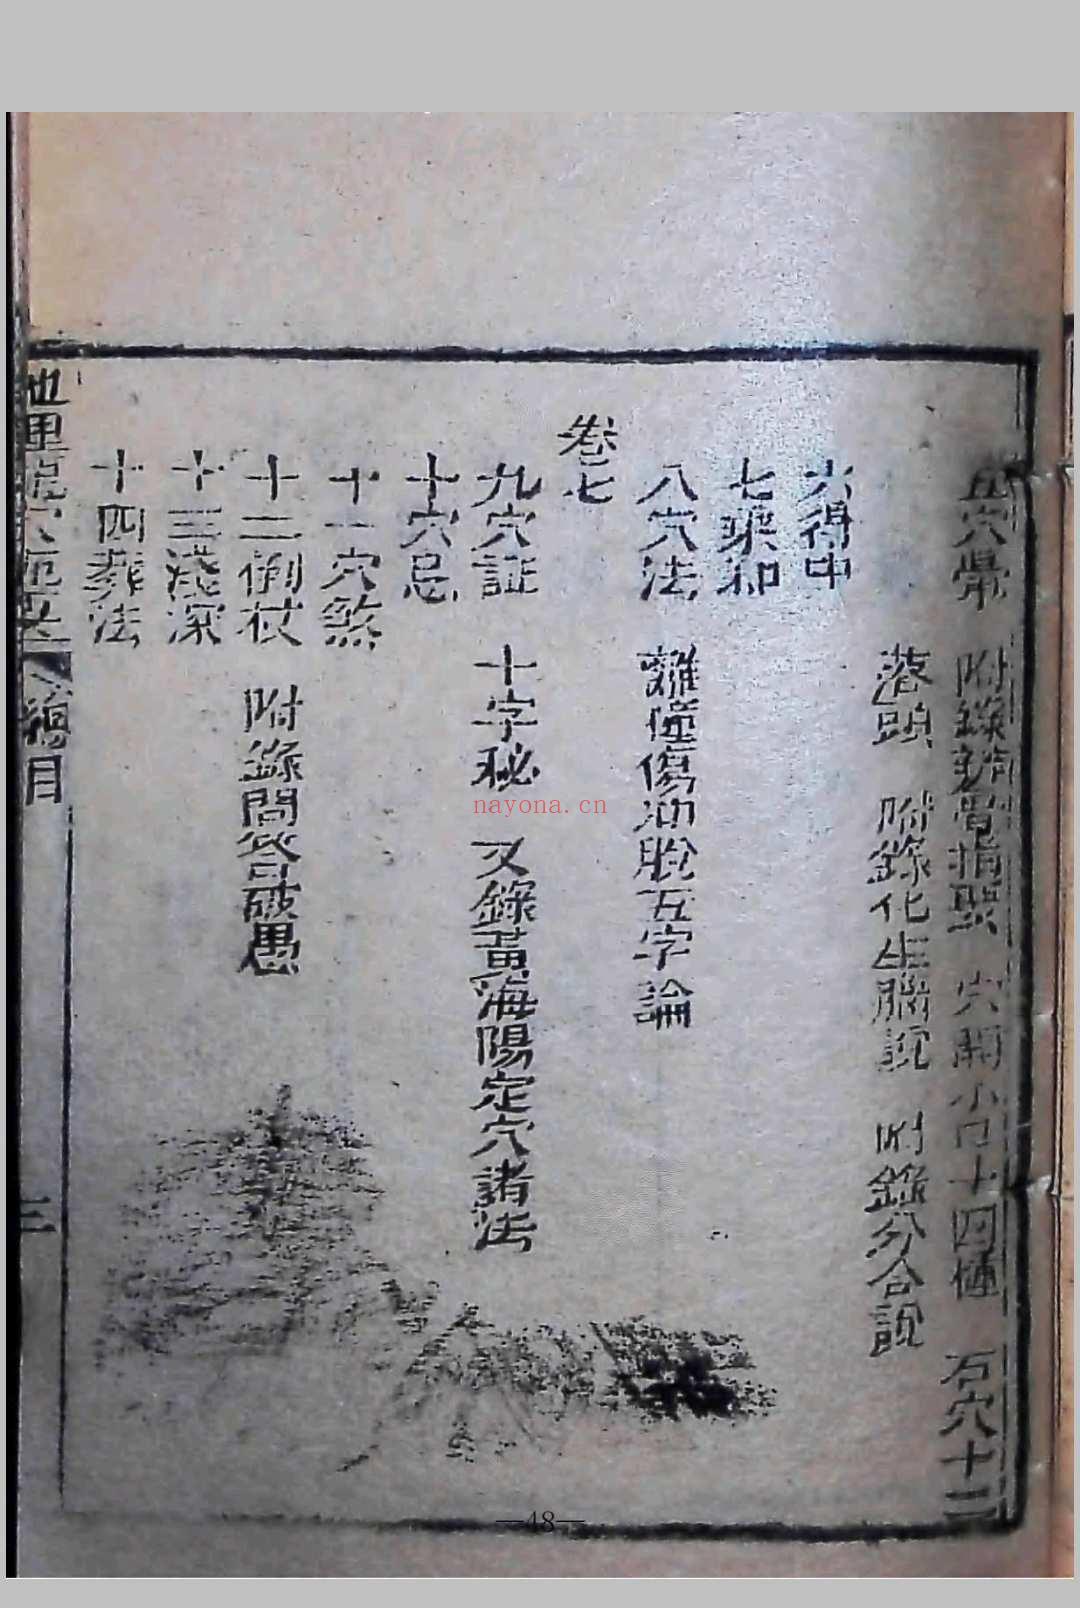 五穴暈 附錄 指 穴 小口十四 石穴十二
落頭 附錄化生腦說 附錄分合說
六得中
七乘和
八穴法 離撞傷 脫五字論
卷七
九穴証 十字秘 又錄黃海陽定穴諸法
十穴忌
十一穴煞
十二倒杖 附錄問答破愚
十三淺深
十四葬法
地理 穴 總目
三
nayona.cn
—48—